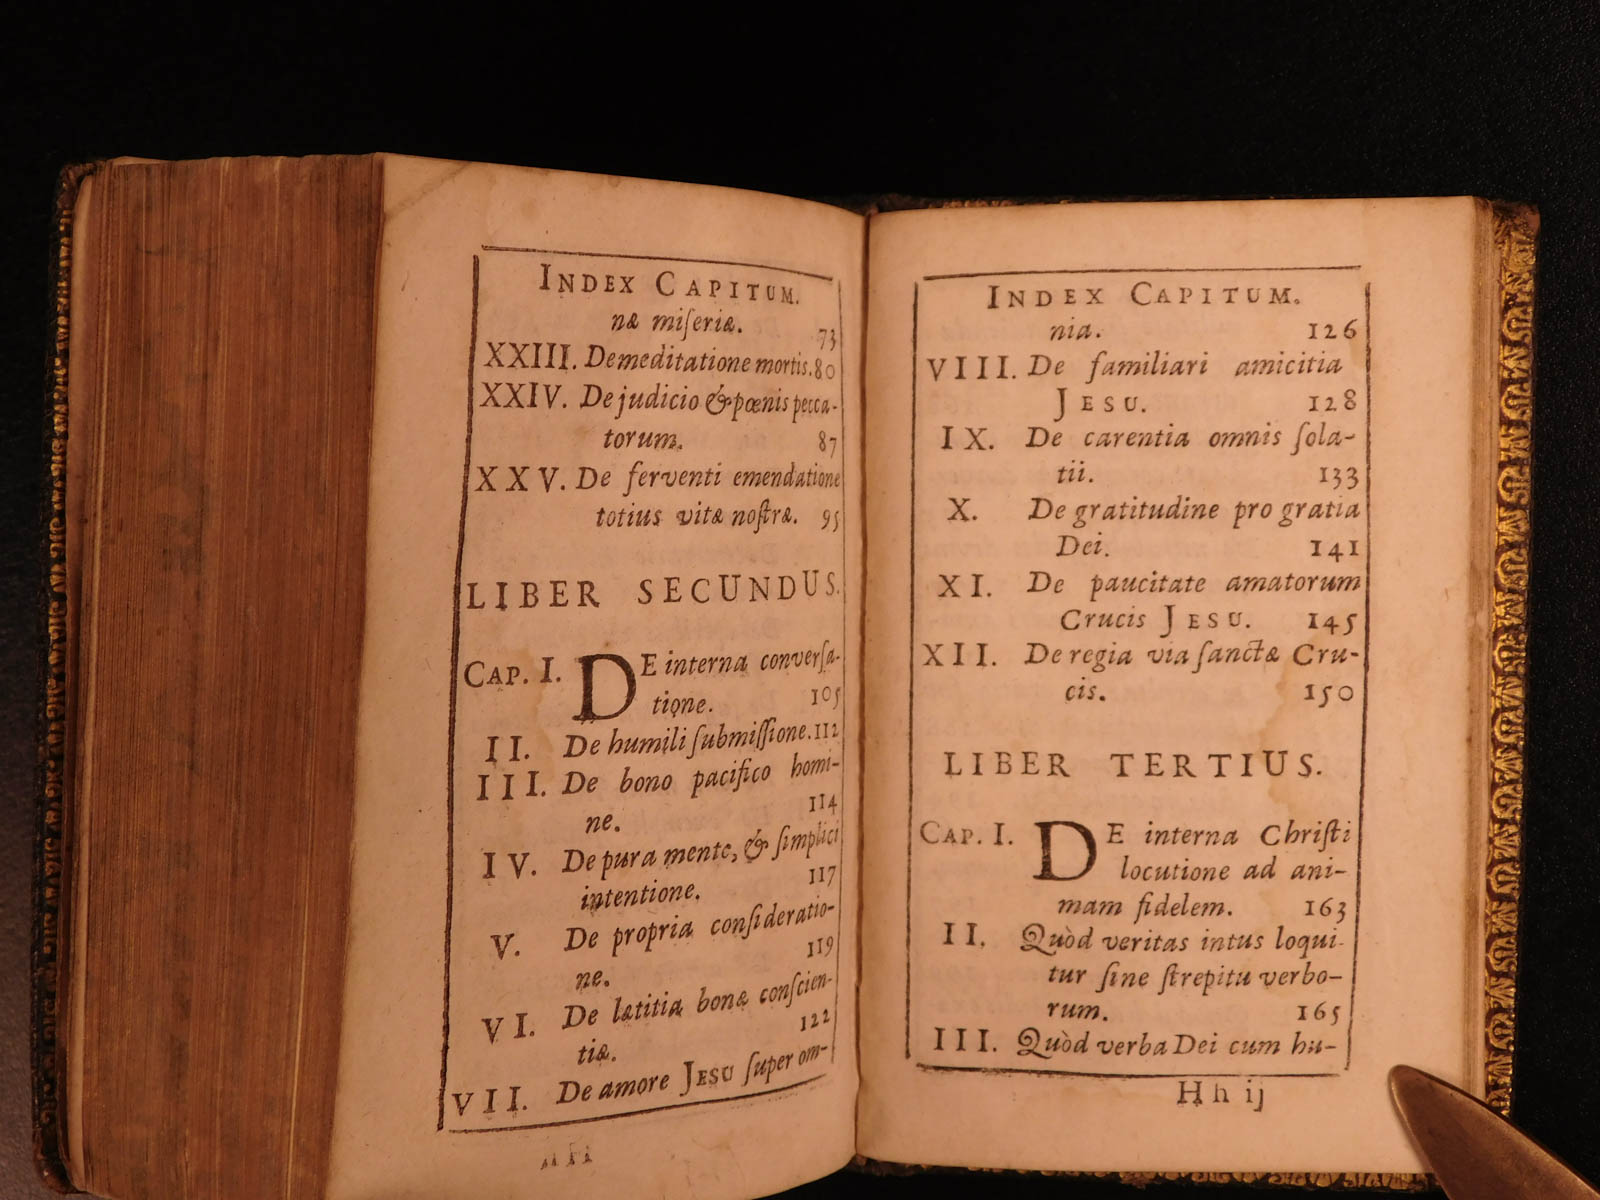 INDEX CAPITUM.
næ miſeriæ. 73
XXIII. De meditatione mortis. 80
XXIV. De judicio & pœnis pecca-
torum. 87
XXV. De ferventi emendatione
totius vitæ noſtræ. 95
LIBER SECUNDUS.
CAP. I. DE interna converſa-
tione. 105
II. De humili ſubmiſſione. 112
III. De bono pacifico homi-
ne. 114
IV. De pura mente, & ſimplici
intentione. 117
V. De propria conſideratio-
ne. 119
VI. De lætitia bonæ conſcien-
tiæ. 122
VII. De amore JESU ſuper om-
INDEX CAPITUM.
nia. 126
VIII. De familiari amicitia
JESU. 128
IX. De carentia omnis ſola-
tii. 133
X. De gratitudine pro gratia
Dei. 141
XI. De paucitate amatorum
Crucis JESU. 145
XII. De regia via ſanctæ Cru-
cis. 150
LIBER TERTIUS.
CAP. I. DE interna Chriſti
locutione ad ani-
mam fidelem. 163
II. Quòd veritas intus loqui-
tur ſine ſtrepitu verbo-
rum. 165
III. Quòd verba Dei cum hu-
Hh ij